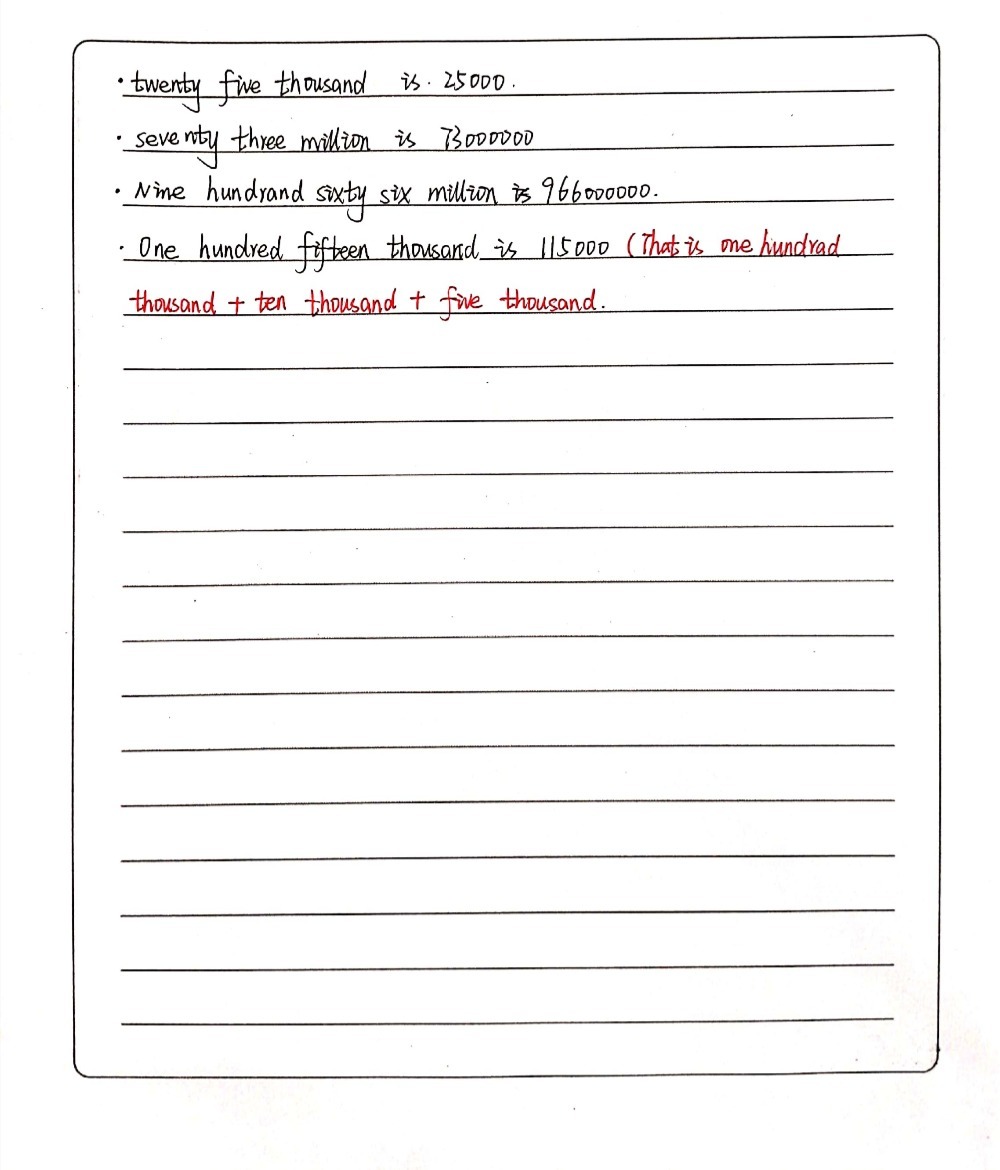 · twenty five thousand is · 25000.
· seventy three million is 73000000
· Nine hundrand sixty six million is 966000000.
· One hundred fifteen thousand is 115000 (That is one hundrad
thousand + ten thousand + five thousand.